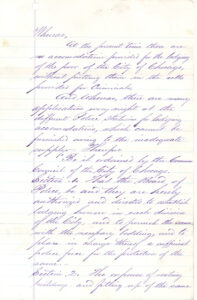 Whereas,
At the present time there are
no accomodations provided for the lodging
of the poor of the City of Chicago,
without putting them in the cells
provided for Criminals.
And whereas, there are many
applications every night at the
different Police Stations for lodging
accomodations, which cannot be
provided owing to the inadequate
supply. Therefore
Be it ordained by the Common
Council of the City of Chicago.
Section 1. That the Board of
Police be and they are hereby
authorized and directed to establish
lodging houses in each division
of the City, and to provide the same
with the necessary bedding, and to
place in charge thereof a sufficient
police force for the protection of the
same.
Section 2. The expense of
buildings and fitting up of the same